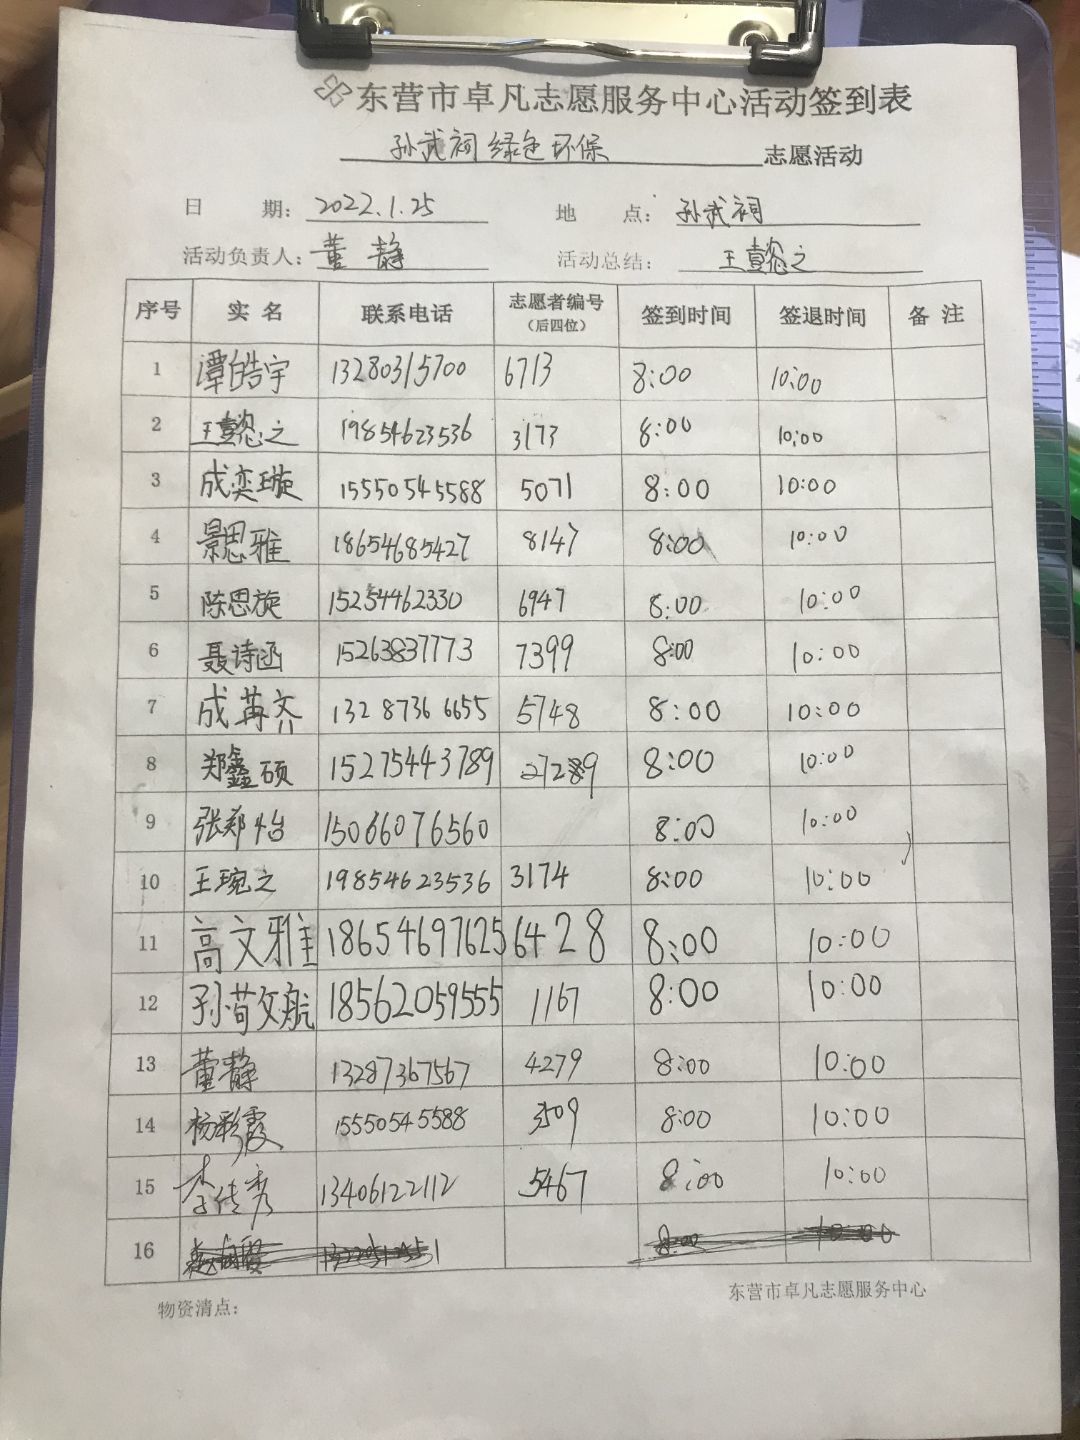 东营市卓凡志愿服务中心活动签到表
孙武祠绿色环保 志愿活动
日 期: 2022.1.25 地 点: 孙武祠
活动负责人: 董静 活动总结: 王懿之
序号 实名 联系电话 志愿者编号(后四位) 签到时间 签退时间 备注
1 谭皓宇 13280315700 6713 8:00 10:00
2 王懿之 19854623536 3173 8:00 10:00
3 成奕璇 15550545588 5071 8:00 10:00
4 景思雅 18654685427 8147 8:00 10:00
5 陈思旋 15254462330 6947 8:00 10:00
6 聂诗函 15263837773 7399 8:00 10:00
7 成苒齐 13287366655 5748 8:00 10:00
8 郑鑫硕 15275443789 8:00 10:00
9 张郑怡 15066076560 8:00 10:00
10 王琬之 19854623536 3174 8:00 10:00
11 高文雅 18654697625 6428 8:00 10:00
12 孙荀文航 18562059555 1167 8:00 10:00
13 董静 13287367567 4279 8:00 10:00
14 杨彩霞 15550545588 3509 8:00 10:00
15 李传秀 13406122112 5467 8:00 10:00
16 8:00 10:00
物资清点: 东营市卓凡志愿服务中心